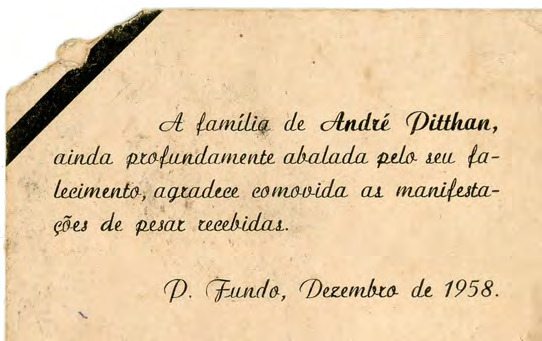 A família de André Pitthan,
ainda profundamente abalada pelo seu fa-
lecimento, agradece comovida as manifesta-
ções de pesar recebidas.
P. Fundo, Dezembro de 1958.